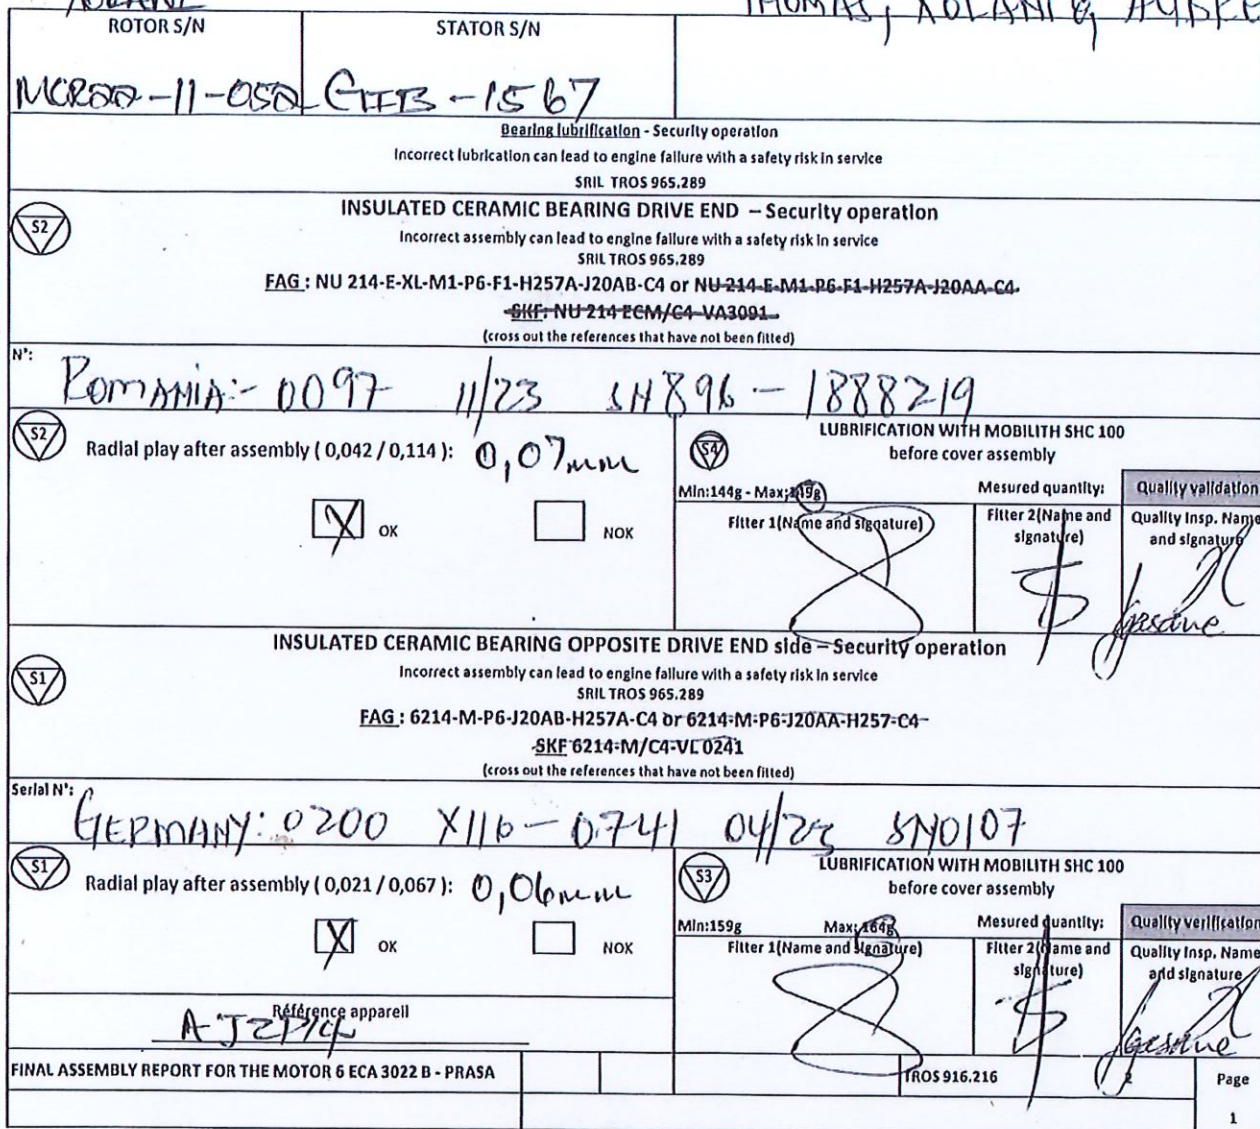 THOMAS, XOLANI &
ROTOR S/N STATOR S/N
GIB-1567
Bearing lubrification - Security operation
Incorrect lubrication can lead to engine failure with a safety risk in service
SRIL TROS 965.289
S2
INSULATED CERAMIC BEARING DRIVE END – Security operation
Incorrect assembly can lead to engine failure with a safety risk in service
SRIL TROS 965.289
FAG : NU 214-E-XL-M1-P6-F1-H257A-J20AB-C4 or NU-214-E-M1-P6-F1-H257A-J20AA-C4
SKF: NU 214 ECM/C4-VA3091
(cross out the references that have not been fitted)
N°:
ROMANIA:- 0097 11/23 SH896 - 1888219
S2
Radial play after assembly ( 0,042 / 0,114 ): 0,07mm
X OK NOK
S4
LUBRIFICATION WITH MOBILITH SHC 100
before cover assembly
Min:144g - Max:149g Mesured quantity: Quality validation
Fitter 1(Name and signature) Fitter 2(Name and signature) Quality Insp. Name and signature
INSULATED CERAMIC BEARING OPPOSITE DRIVE END side – Security operation
S1
Incorrect assembly can lead to engine failure with a safety risk in service
SRIL TROS 965.289
FAG : 6214-M-P6-J20AB-H257A-C4 or 6214-M-P6-J20AA-H257-C4
SKF 6214-M/C4-VL 0241
(cross out the references that have not been fitted)
Serial N°:
GERMANY: 0200 X116-0741 04/23 SN0107
S1
Radial play after assembly ( 0,021 / 0,067 ): 0,06mm
X OK NOK
S3
LUBRIFICATION WITH MOBILITH SHC 100
before cover assembly
Min:159g Max:164g Mesured quantity: Quality verification
Fitter 1(Name and Signature) Fitter 2(Name and signature) Quality Insp. Name and signature
Référence appareil
FINAL ASSEMBLY REPORT FOR THE MOTOR 6 ECA 3022 B - PRASA
TROS 916.216 2
Page
1